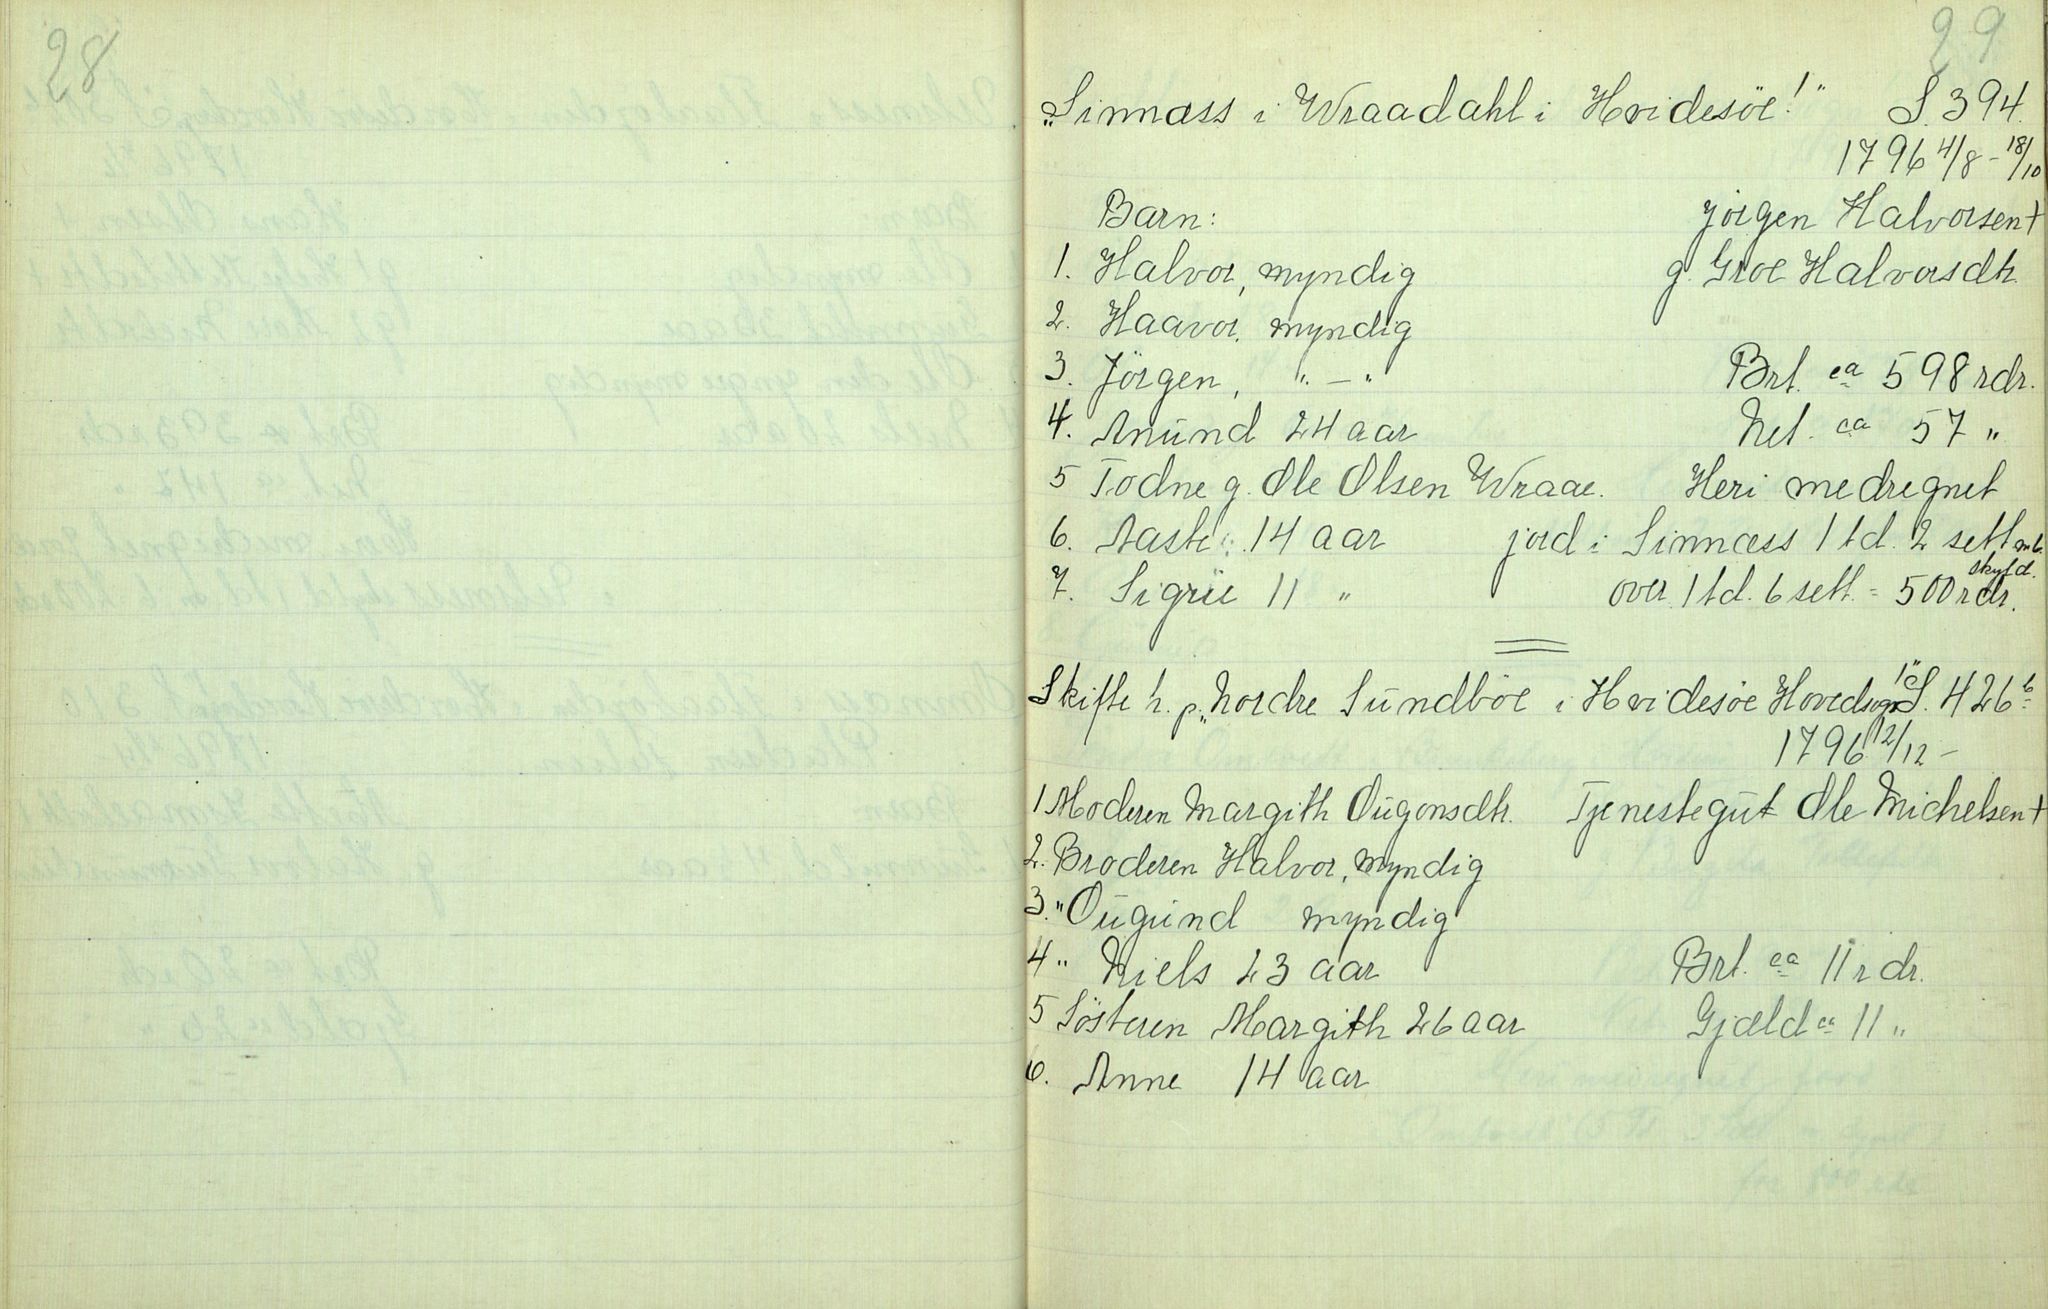 28
29
"Sinnæss i Wraadahl i Hvidesöe!" S. 394.
1796 4/8 - 18/10
Barn: Jörgen Halvorsen +
1. Halvor, myndig g. Groe Halvorsdtr.
2. Haavor, myndig
3. Jörgen, " - " Brt. ca 598 rdr.
4. Anund 24 aar Net. ca 57 "
5 Todne g. Ole Olsen Wraae. Heri medregnet
6. Aaste 14 aar jord i Sinnæss 1 td. 2 sett
skyld.
7. Sigrie 11 " over 1 td. 6 sett. = 500 rdr.
Skifte h. p. "Nordre Sundböe i Hvidesöe Hovedsogn!" S. 426 b
1796 12/12 -
1 Moderen Margith Ougonsdtr. Tjenestegut Ole Michelsen +
2. Broderen Halvor, myndig
3. " Ougund myndig
4 " Niels 23 aar Brt. ca 11 rdr.
5 Sösteren Margith 26 aar Gjæld ca 11 "
6. Anne 14 aar